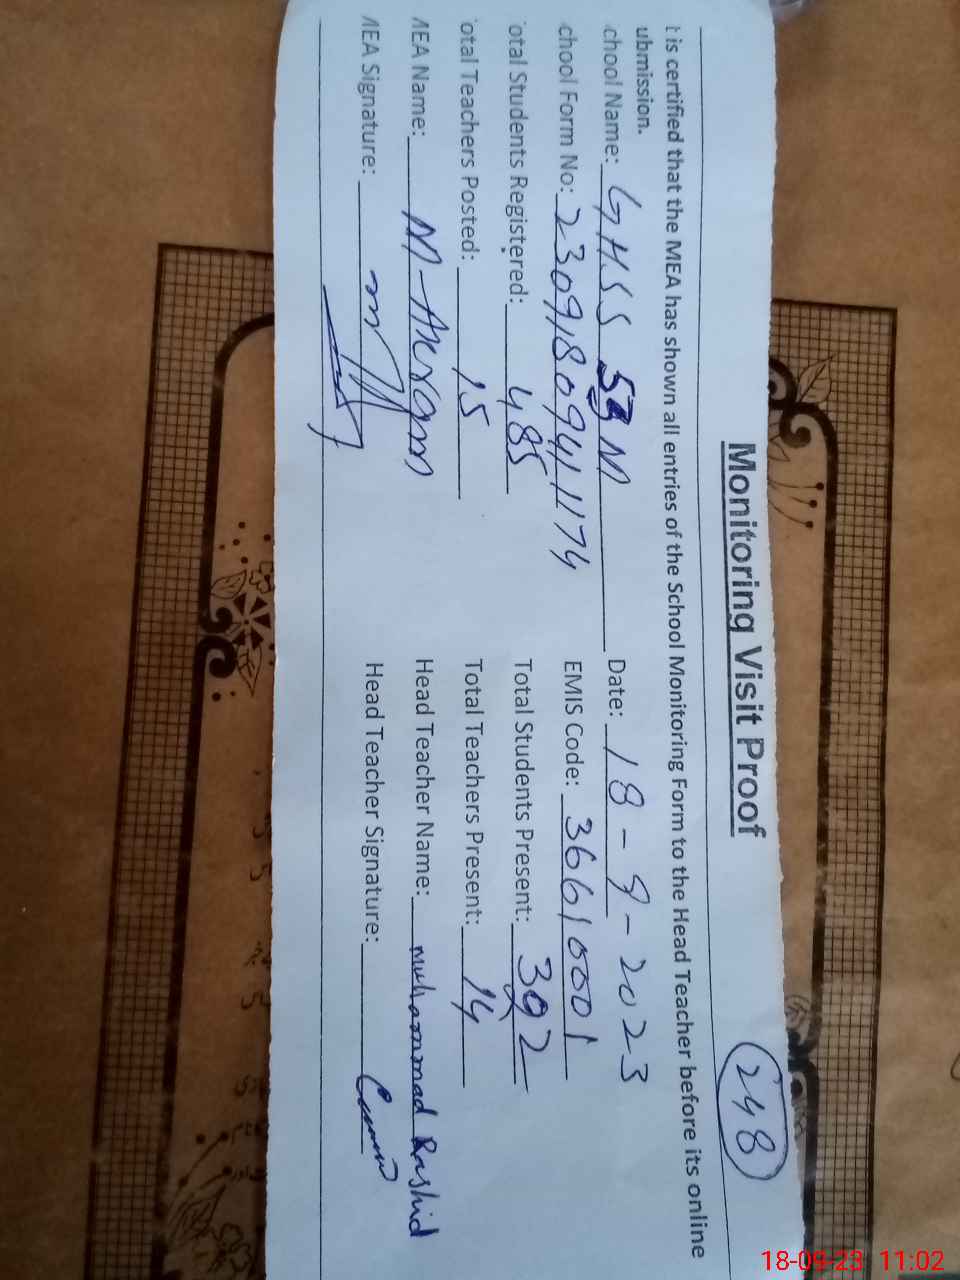 Monitoring Visit Proof
248
t is certified that the MEA has shown all entries of the School Monitoring Form to the Head Teacher before its online
ubmission.
chool Name: GHSS 53 M Date: 18-9-2023
chool Form No: 23091809411174 EMIS Code: 36610001
otal Students Registered: 485 Total Students Present: 392
otal Teachers Posted: 15 Total Teachers Present: 14
MEA Name: M-Akram Head Teacher Name: Muhammad Rashid
MEA Signature: Head Teacher Signature:
18-09-23 11:02